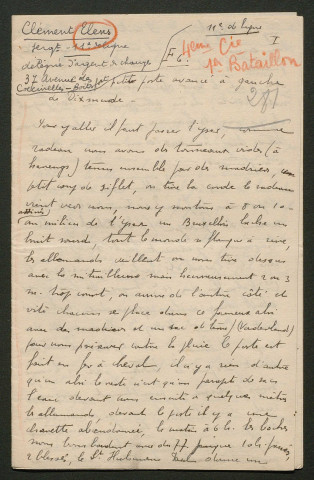 Clément Clens
11e de ligne
I
Sergt 11e de ligne
4eme Cie
1er Bataillon
de ligne agent de change
37 Avenue des
petit poste avancé à gauche
281
de Dixmude
Pour y aller il faut passer l'Yser, comme
radeau nous avons des tonneaux vides (à
harengs) tenus ensemble par des madriers, un
petit coup de sifflet, on tire la corde le radeau
vient vers nous, nous y montons à 8 ou 10
au milieu de l'Yser un Bruxellois lâche un
bruit sourd, tout le monde se flanque à rire,
les allemands veillent on nous tire dessus
avec la mitrailleuse mais heureusement 2 ou 3
m. trop court, on arrive de l'autre côté et
vite chacun se place dans ce fameux abri
avec des madriers et un sac de terre (Vaderland)
pour nous préserver contre la pluie le poste est
fait en fer à cheval, il n'y a rien d'autre
qu'un abri le reste n'est qu'un parapet de sacs
l'eau devant nous ensuite à quelques mètres
les allemands, devant le poste il y a une
charrette abandonnée, le matin à 6 h. les boches
nous bombardent avec des 77 jusque 10 h.
2 blessés, le Lt